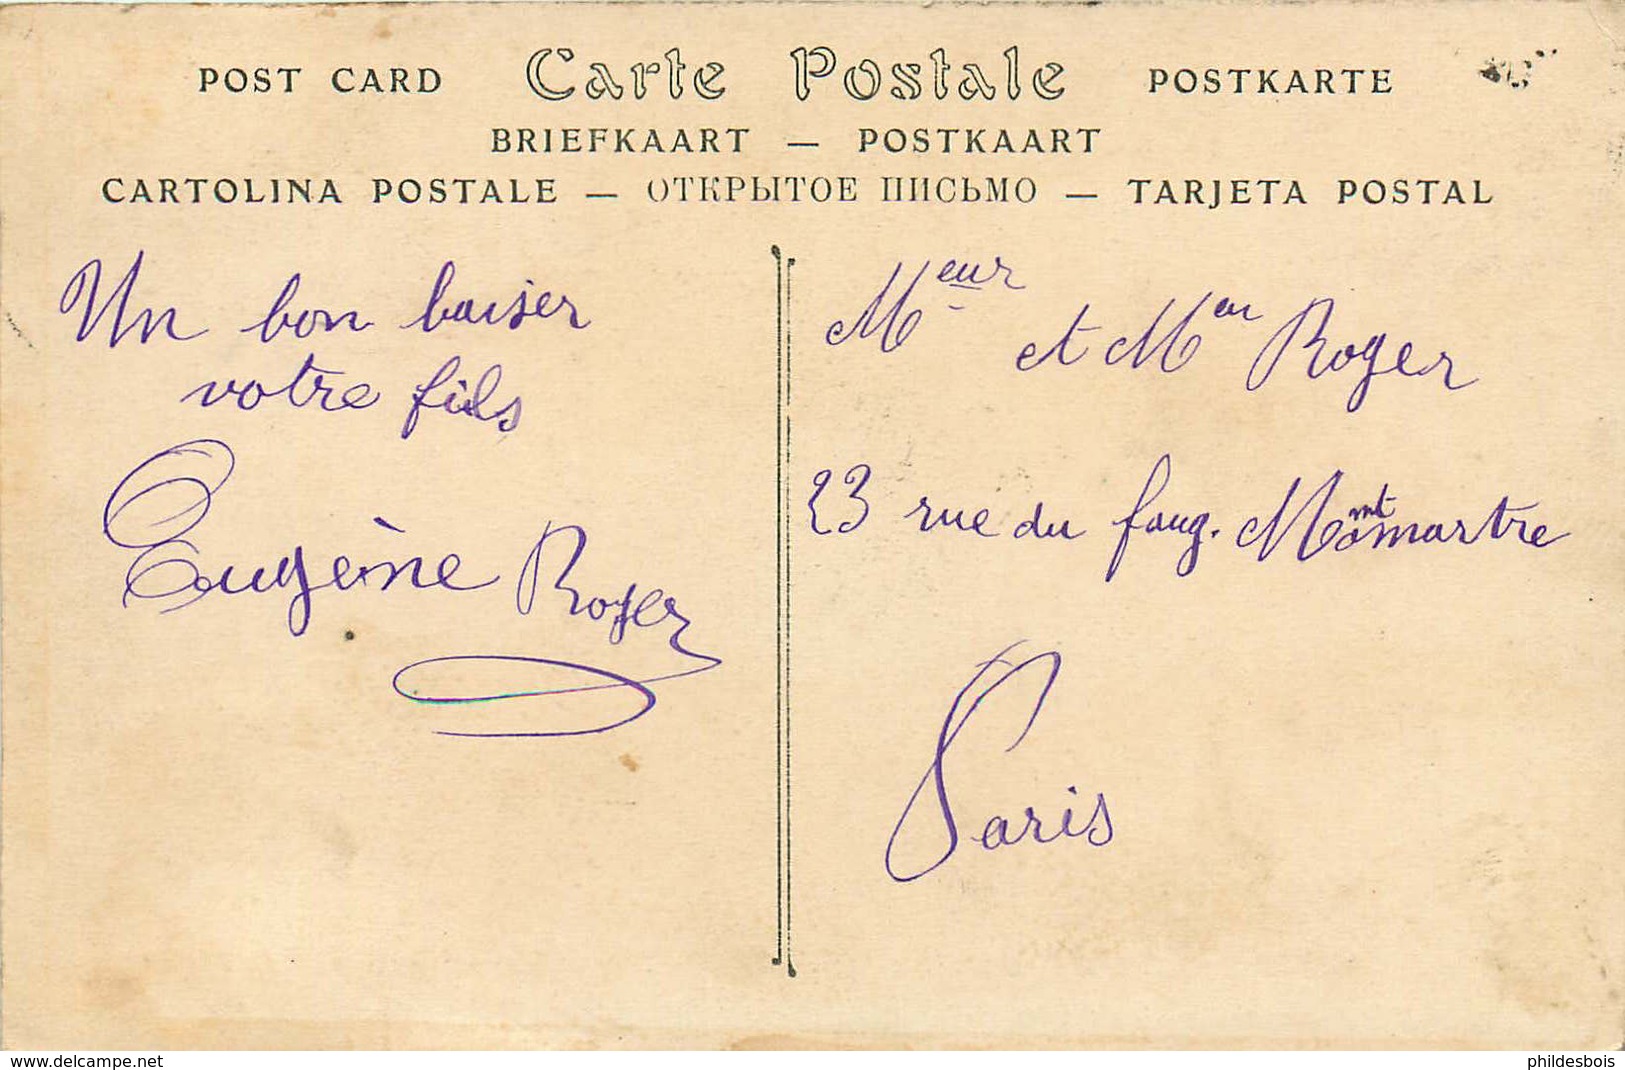 POST CARD Carte Postale POSTKARTE
BRIEFKAART — POSTKAART
CARTOLINA POSTALE — ОТКРЫТОЕ ПИСЬМО — TARJETA POSTAL
Un bon baiser
votre fils
Eugène Roger
Meur
et Meu Roger
23 rue du faug. Montmartre
Paris
www.delcampe.net
phildesbois